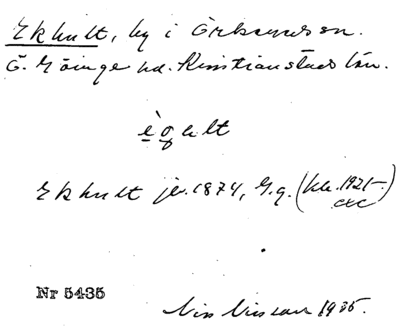 Ekhult, by i Örkeneds sn.
Ö. Göinge hd. Kristianstads län.
è̱g̱ult
Ekhult jb. 1874, G.q. (kb. 1921-
etc)
Nr 5435
Nils Nilsson 1935.